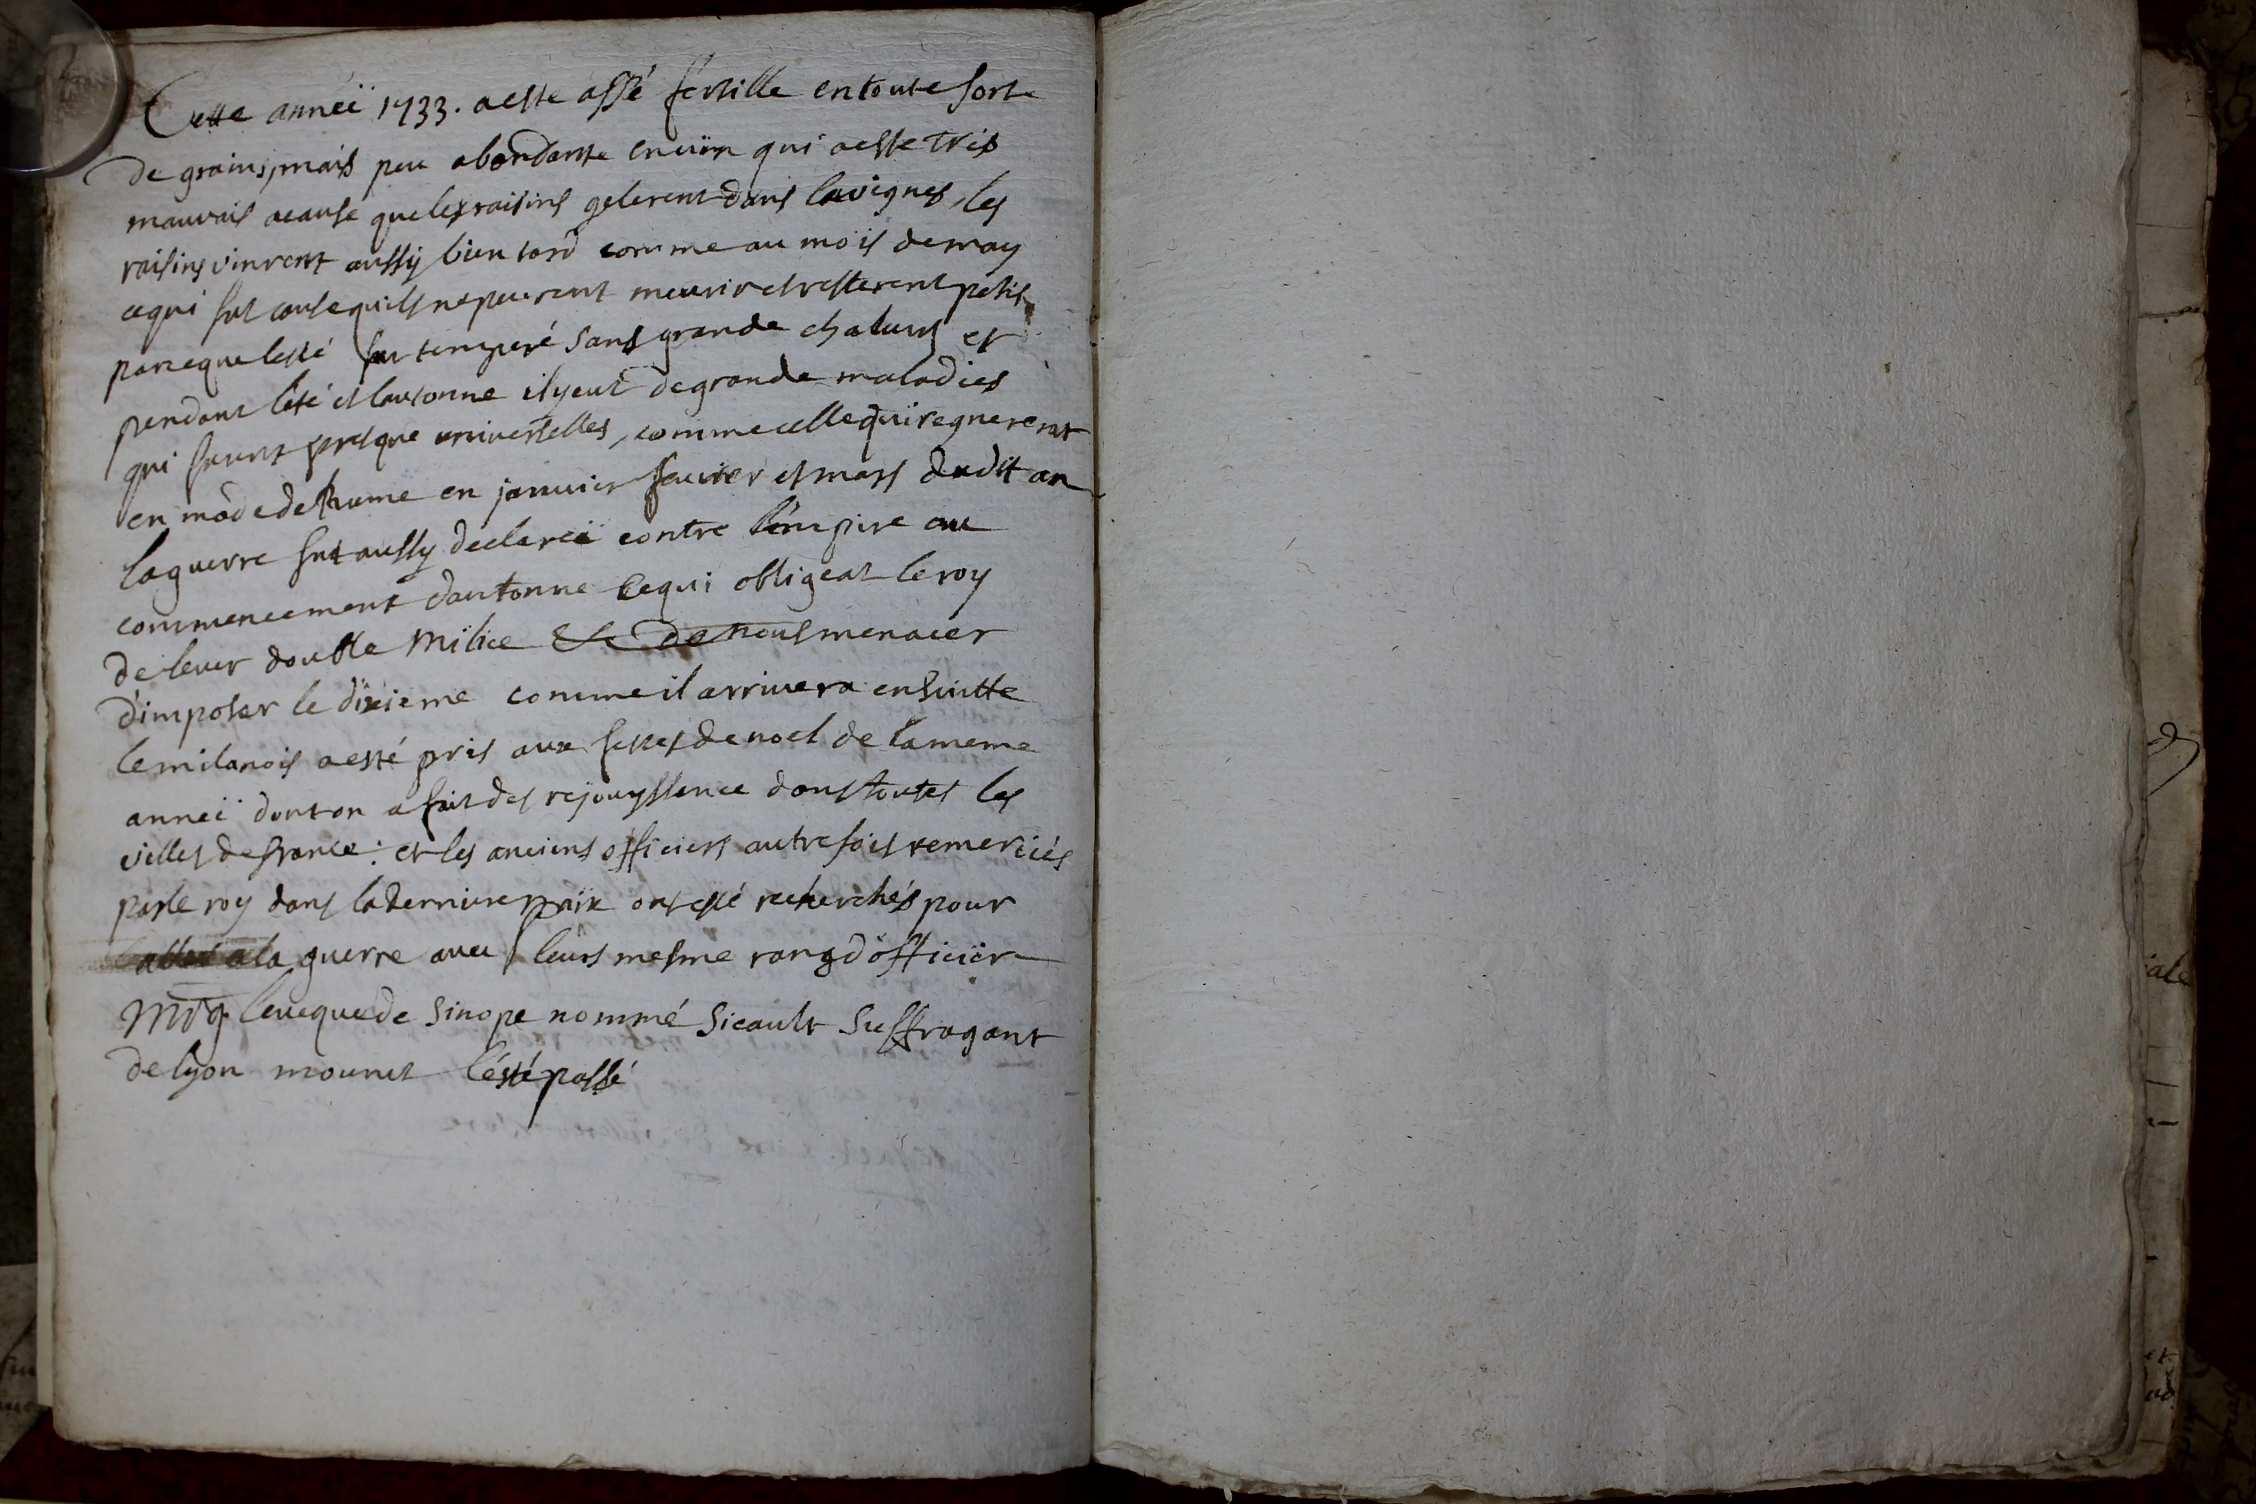 Cette anneë 1733. a este assé fertille en toute sorte
de grains, mais peu abondante en vin qui a este tres
mauvais a cause que les raisins gelerent dans la vignes, les
raisins vinrent aussy bien tard comme au mois de may
ce qui fut cause quils ne peurent meurir et resterent petits
parce que lesté fut temperé sans grande chaleurs et
pendant l'eté et lautonne il y eut de grande maladies
qui furent presque universelles, comme celle qui regnerent
en mode de rhume en janvier fevrier et mars dudit an
la guerre fut aussy declareë contre l'empire au
commencement dautonne ce qui obligeat le roy
de lever double milice & de nous menacer
d'imposer le dixieme comme il arrivera ensuitte
le milanois a esté pris aux festes de noel de la meme
anneë dont on a fait des rejouyssence dans toutes les
villes de france : et les anciens officiers autrefois remerciés
par le roy dans la derniere paix ont esté recherchés pour
aller a la guerre avec leurs mesme rang d'officier
Mrg leveque de Sinope nommé Sicault Suffragant
de lyon mourut l'ésté passé